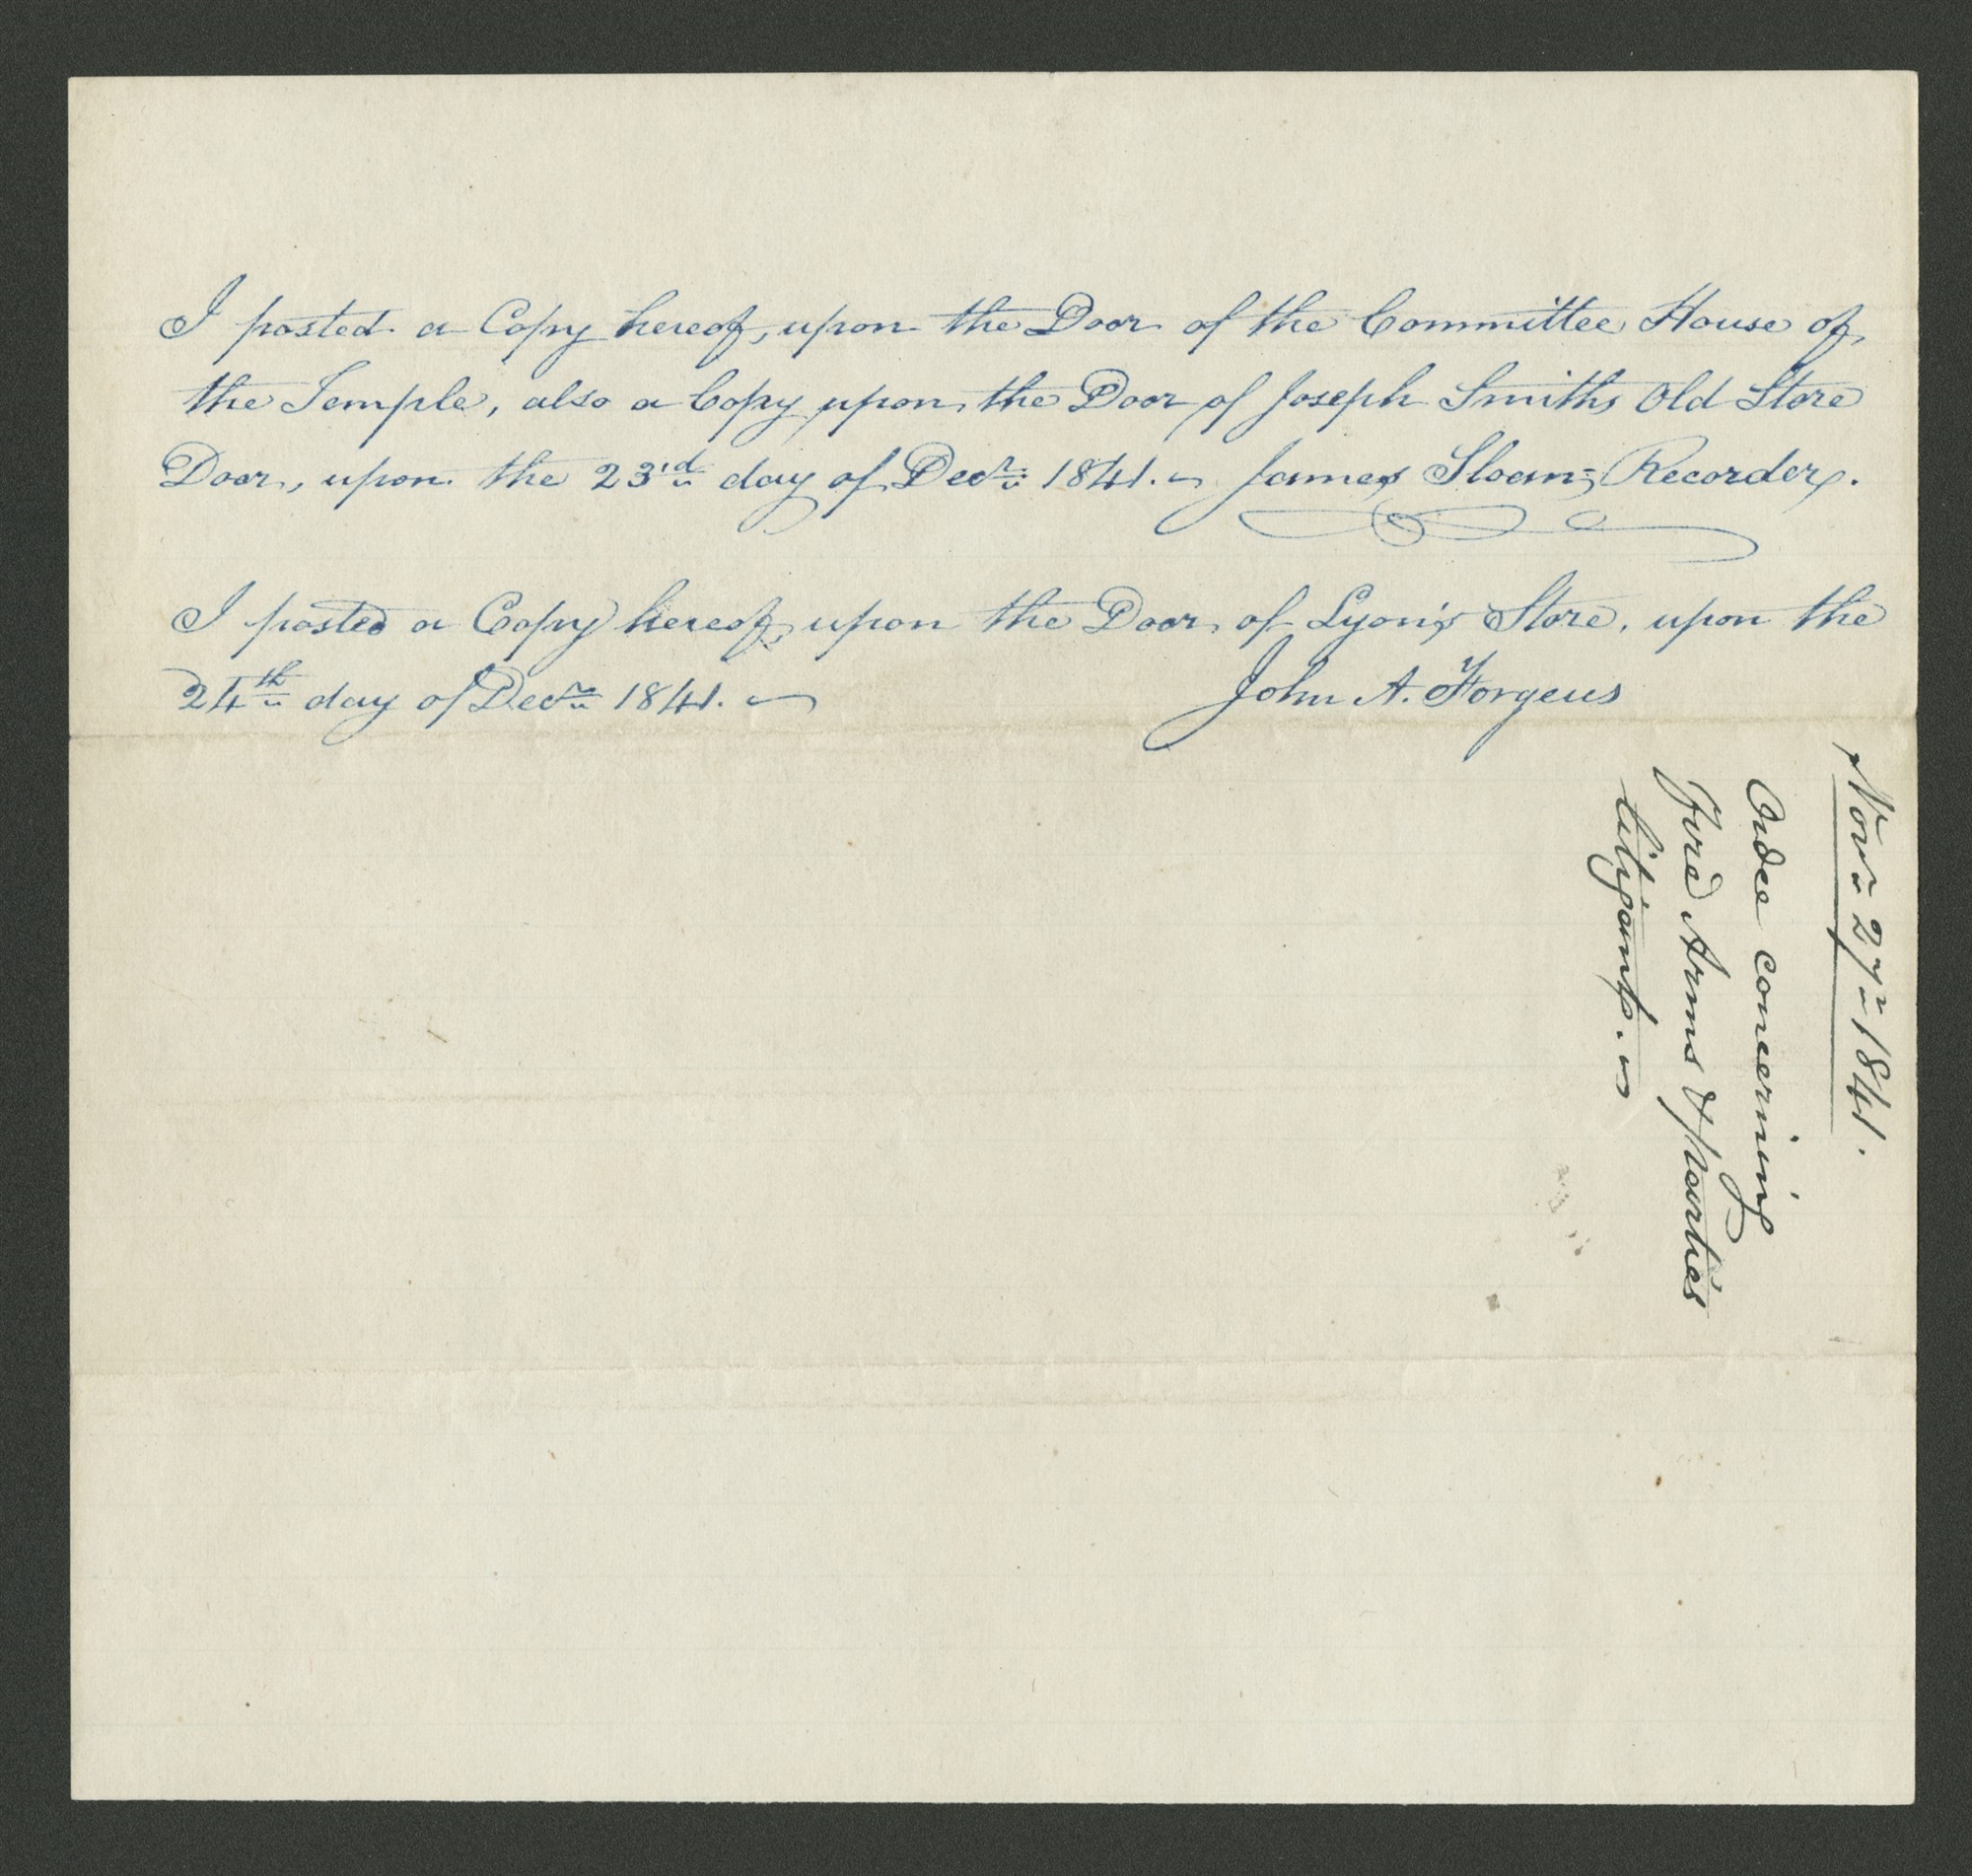 I posted a Copy hereof, upon the Door of the Committee House of
the Temple, also a Copy upon the Door of Joseph Smiths Old Store
Door, upon the 23rd day of Decr. 1841. James Sloan, Recorder.
I posted a Copy hereof, upon the Door of Lyon's Store, upon the
24th day of Decr. 1841. John A. Forgeus
Nov. 27th 1841.
Order concerning
Fire Arms & Parties
litigant.